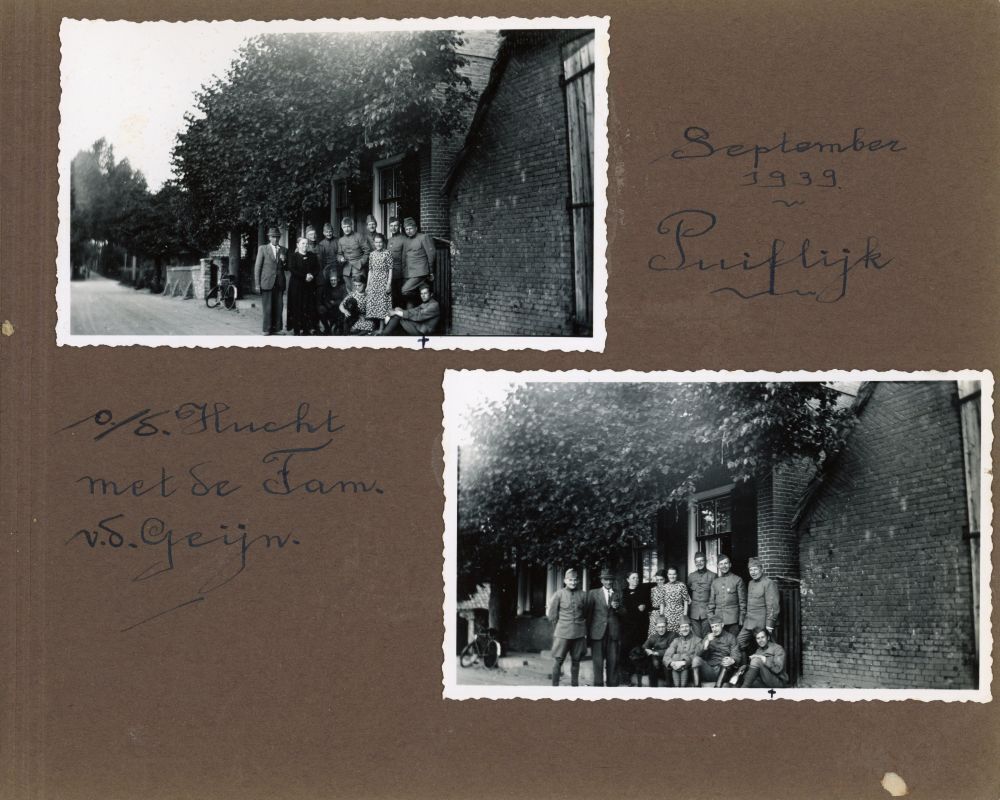 September
1939.
Puiflijk
o/d. Hucht
met de Fam.
v.d. Geijn.